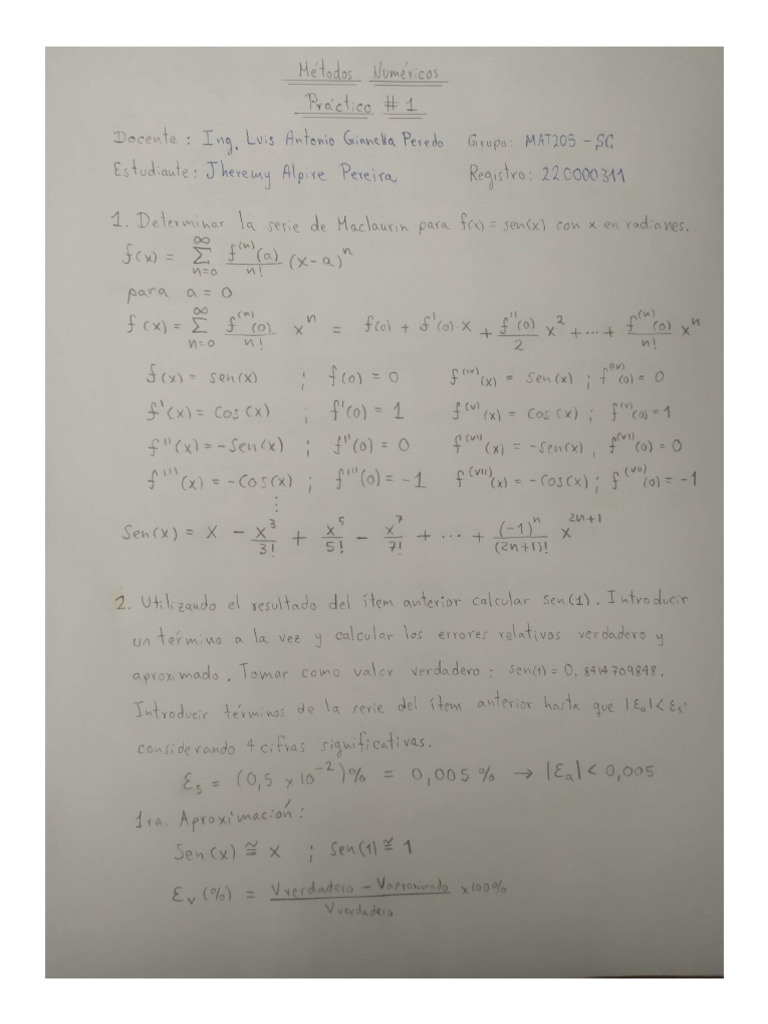 Métodos Numéricos
Práctico # 1
Docente : Ing. Luis Antonio Gianella Peredo Grupo: MAT205 - SC
Estudiante: Jheremy Alpire Pereira Registro: 22C000311
1. Determinar la serie de Maclaurin para f(x) = sen(x) con x en radianes.
f(x) = ∑_{n=0}^{∞} f^{(n)}(a)/n! (x-a)^n
para a = 0
f(x) = ∑_{n=0}^{∞} f^{(n)}(0)/n! x^n = f(0) + f'(0)·x + f''(0)/2 x^2 + ··· + f^{(n)}(0)/n! x^n
f(x) = sen(x) ; f(0) = 0 f^{(IV)}(x) = sen(x) ; f^{(IV)}(0) = 0
f'(x) = cos(x) ; f'(0) = 1 f^{(V)}(x) = cos(x) ; f^{(V)}(0) = 1
f''(x) = -sen(x) ; f''(0) = 0 f^{(VI)}(x) = -sen(x) , f^{(VI)}(0) = 0
f'''(x) = -cos(x) ; f'''(0) = -1 f^{(VII)}(x) = -cos(x) ; f^{(VII)}(0) = -1
⋮
Sen(x) = x - x^3/3! + x^5/5! - x^7/7! + ··· + (-1)^n/(2n+1)! x^{2n+1}
2. Utilizando el resultado del ítem anterior calcular sen(1). Introducir
un término a la vez y calcular los errores relativos verdadero y
aproximado. Tomar como valor verdadero: sen(1) = 0.8414709848.
Introducir términos de la serie del ítem anterior hasta que |Ea| < Es,
considerando 4 cifras significativas.
Es = (0,5 x10^{-2})% = 0,005 % → |Ea| < 0,005
1ra. Aproximación:
Sen(x) ≅ x ; Sen(1) ≅ 1
Ev (%) = (Vverdadero - Vaproximado)/Vverdadero x100%